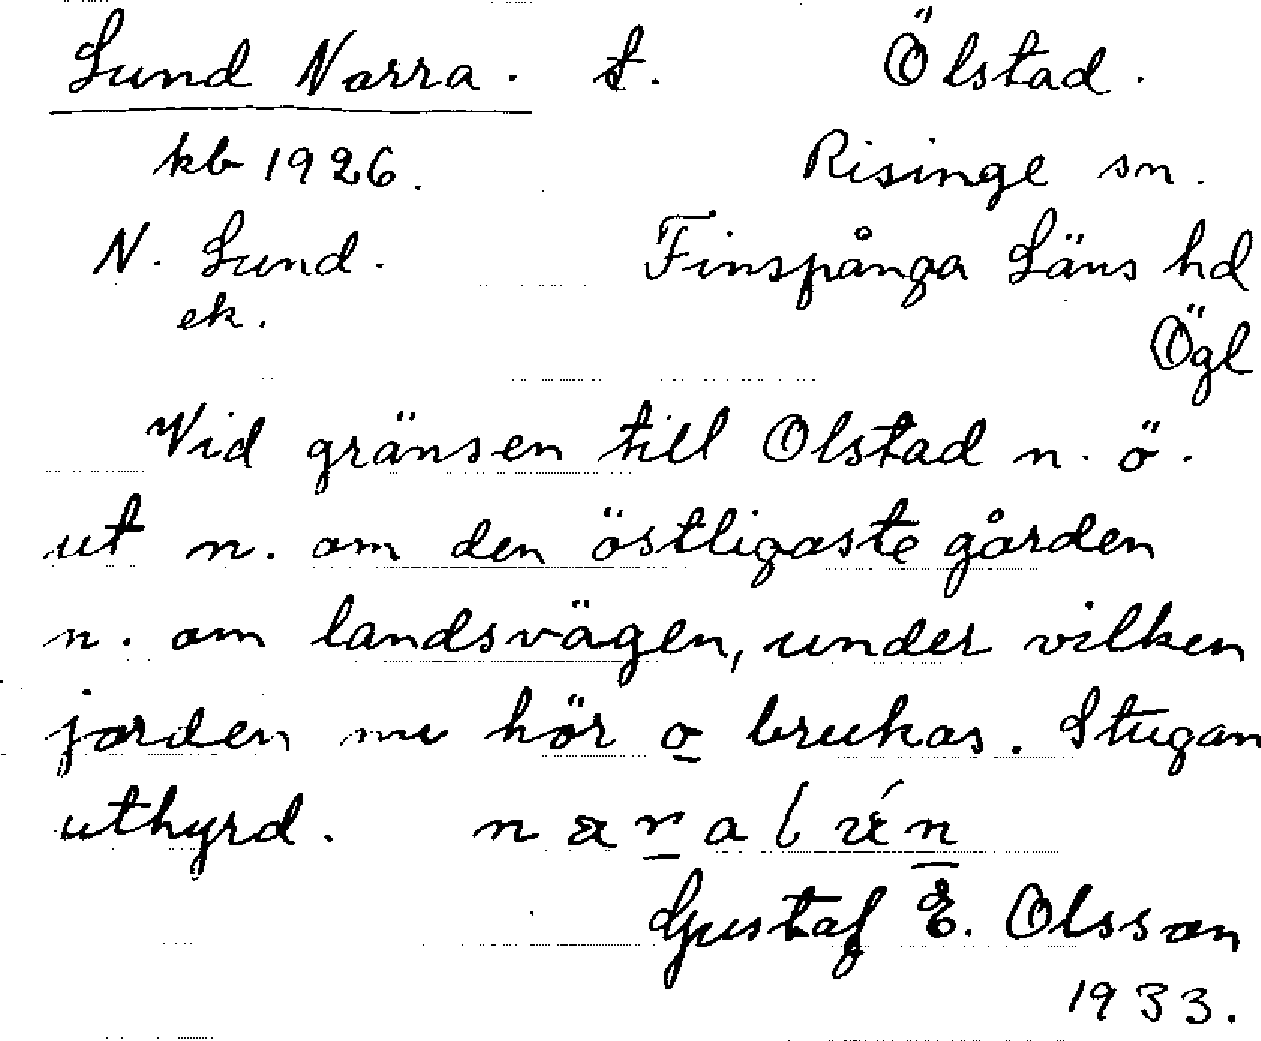 Lund Norra. t. Ölstad.
kb 1926. Risinge sn.
N. Lund. Finspånga Läns hd
ek.
Ögl
Vid gränsen till Olstad n. ö.
ut n. om den östligaste gården
n. om landsvägen, under vilken
jorden nu hör o brukas. Stugan
uthyrd.
Gustaf E. Olsson
1933.